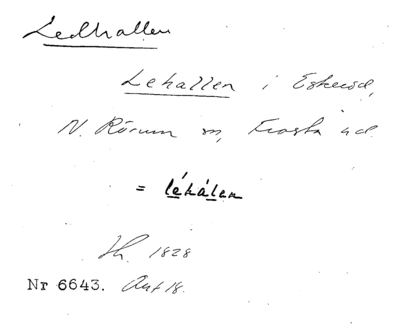 Ledhallen
Lehallen i Eskeröd,
N. Rörum sn, Frosta hd.
= léhàlen
Hh. 1828
Nr 6643. Ant 18.